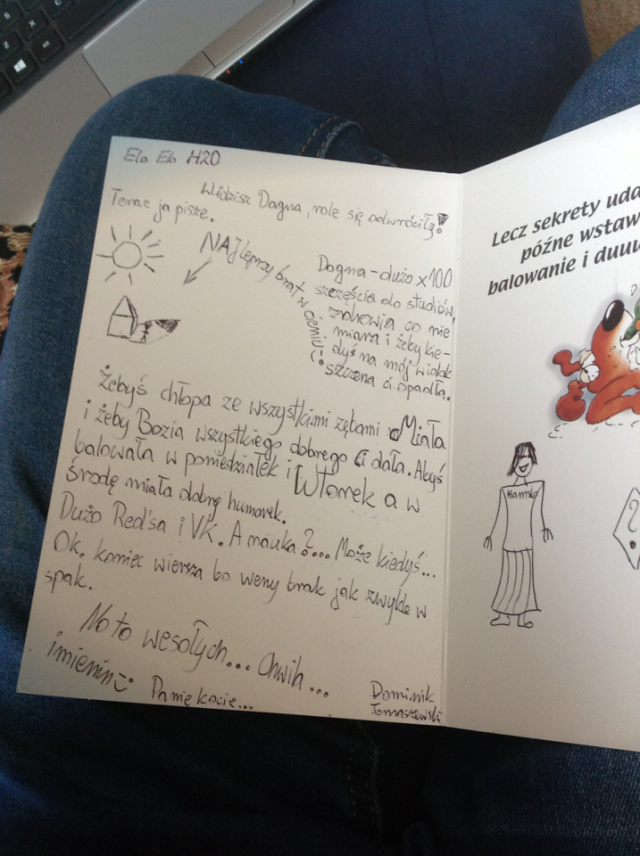 Elo Elo H2O
Widzisz Dagna, role się odwróciły!
Teraz ja piszę.
NAjlepszy brat w cieniu :)
Dagna - dużo x100
szczęścia do studiów,
zdrowia co nie
miara i żeby kie-
dyś na mój widok
szczena ci opadła.
Żebyś chłopa ze wszystkimi zębami Miała
i żeby Bozia wszystkiego dobrego Ci dała. Abyś
balowała w poniedziałek i Wtorek a w
środę miała dobry humorek.
Dużo Red'sa i VK. A nauka?... Może kiedyś...
Ok, koniec wiersza bo weny brak jak zwykle w
spak.
No to wesołych... Chwila...
imienin :)
Pamiętacie...
Dominik
Tomaszewski
Lecz sekrety uda
późne wstaw
balowanie i duuu
?